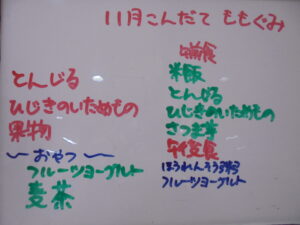 11月こんだて ももぐみ
とんじる
ひじきのいためもの
果物
〜おやつ〜
フルーツヨーグルト
麦茶
米飯
とんじる
ひじきのいためもの
さつま芋
午後食
ほうれんそう粥
フルーツヨーグルト